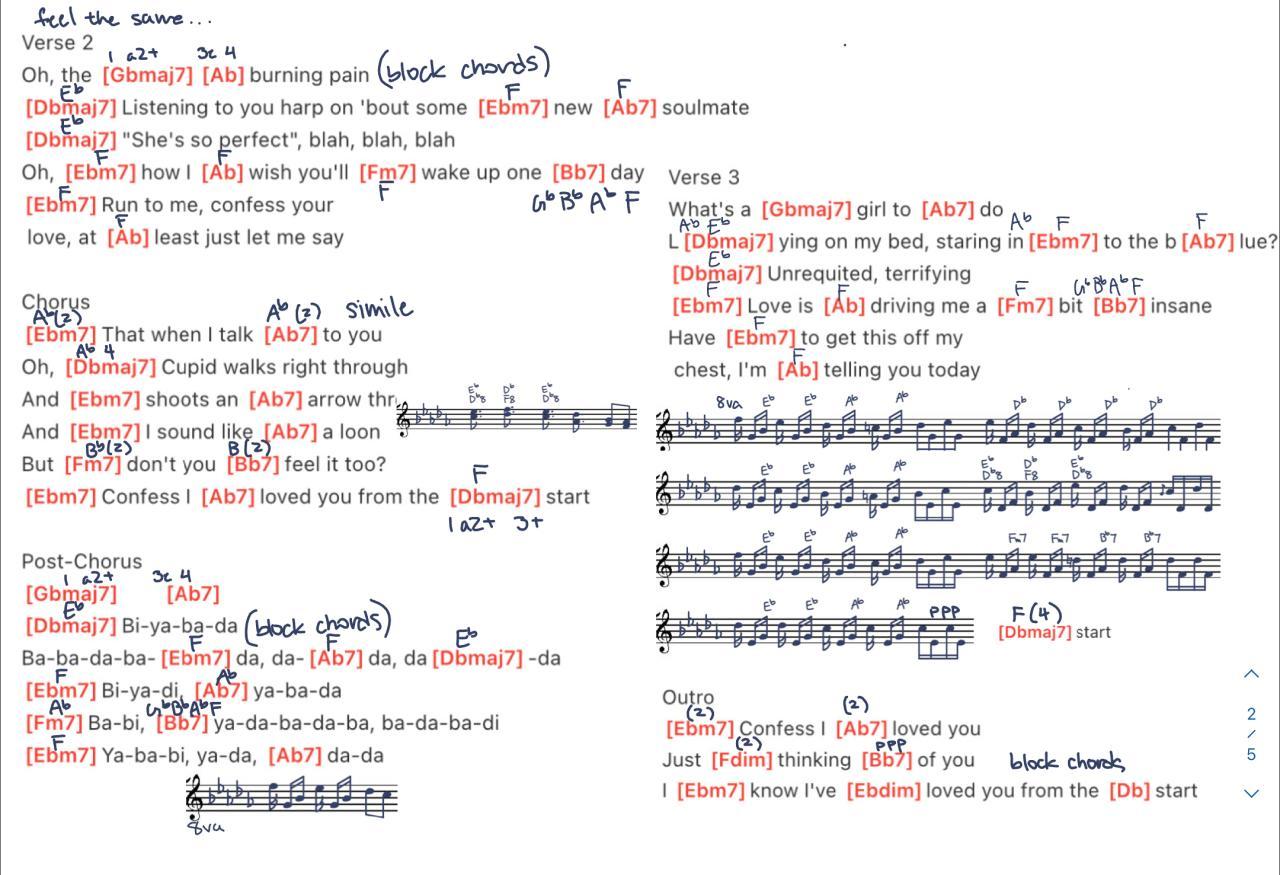 feel the same...
Verse 2
1 a2+ 3c 4
Oh, the [Gbmaj7] [Ab] burning pain (block chords)
Eb F F
[Dbmaj7] Listening to you harp on 'bout some [Ebm7] new [Ab7] soulmate
Eb
[Dbmaj7] "She's so perfect", blah, blah, blah
F F
Oh, [Ebm7] how I [Ab] wish you'll [Fm7] wake up one [Bb7] day
F F Gb Bb Ab F
[Ebm7] Run to me, confess your
F
love, at [Ab] least just let me say
Chorus
Ab(2) Ab(2) simile
[Ebm7] That when I talk [Ab7] to you
Ab 4
Oh, [Dbmaj7] Cupid walks right through
And [Ebm7] shoots an [Ab7] arrow thr
Eb Db Eb
Db8 F8 Db8
And [Ebm7] I sound like [Ab7] a loon
Bb(2) B(2)
But [Fm7] don't you [Bb7] feel it too?
F
[Ebm7] Confess I [Ab7] loved you from the [Dbmaj7] start
1 a2+ 3+
Post-Chorus
1 a2+ 3c 4
[Gbmaj7] [Ab7]
Eb
[Dbmaj7] Bi-ya-ba-da (block chords)
F F Eb
Ba-ba-da-ba- [Ebm7] da, da- [Ab7] da, da [Dbmaj7] -da
F Ab
[Ebm7] Bi-ya-di, [Ab7] ya-ba-da
Ab Gb Bb Ab F
[Fm7] Ba-bi, [Bb7] ya-da-ba-da-ba, ba-da-ba-di
F
[Ebm7] Ya-ba-bi, ya-da, [Ab7] da-da
8va
Verse 3
What's a [Gbmaj7] girl to [Ab7] do
Ab Eb Ab F F
L [Dbmaj7] ying on my bed, staring in [Ebm7] to the b [Ab7] lue?
Eb
[Dbmaj7] Unrequited, terrifying
F F F Gb Bb Ab F
[Ebm7] Love is [Ab] driving me a [Fm7] bit [Bb7] insane
F
Have [Ebm7] to get this off my
F
chest, I'm [Ab] telling you today
8va Eb Eb Ab Ab Db Db Db Db
Eb Eb Ab Ab Eb Db Eb
Db8 F8 Db8
Eb Eb Ab Ab Fm7 Fm7 Bb7 Bb7
Eb Eb Ab Ab ppp F(4)
[Dbmaj7] start
Outro
(2) (2)
[Ebm7] Confess I [Ab7] loved you
(2) ppp
Just [Fdim] thinking [Bb7] of you block chords
I [Ebm7] know I've [Ebdim] loved you from the [Db] start
2
/
5